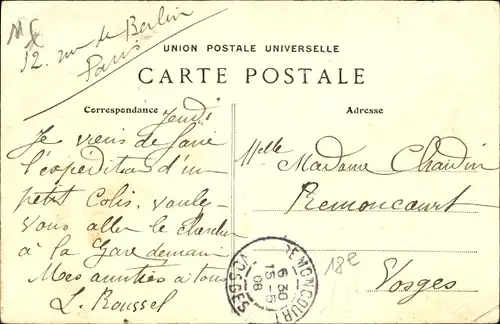 12. rue de Berlin
Paris
UNION POSTALE UNIVERSELLE
CARTE POSTALE
Correspondance
Jeudi
Je viens de faire
l'expédition d'un
petit Colis. voulez
vous aller le chercher
à la Gare demain
Mes amitiés à tous
L. Roussel
Adresse
Melle
Madame Chardin
Remoncourt
Vosges
182
REMONCOURT
6 30
15 - 5
08
VOSGES